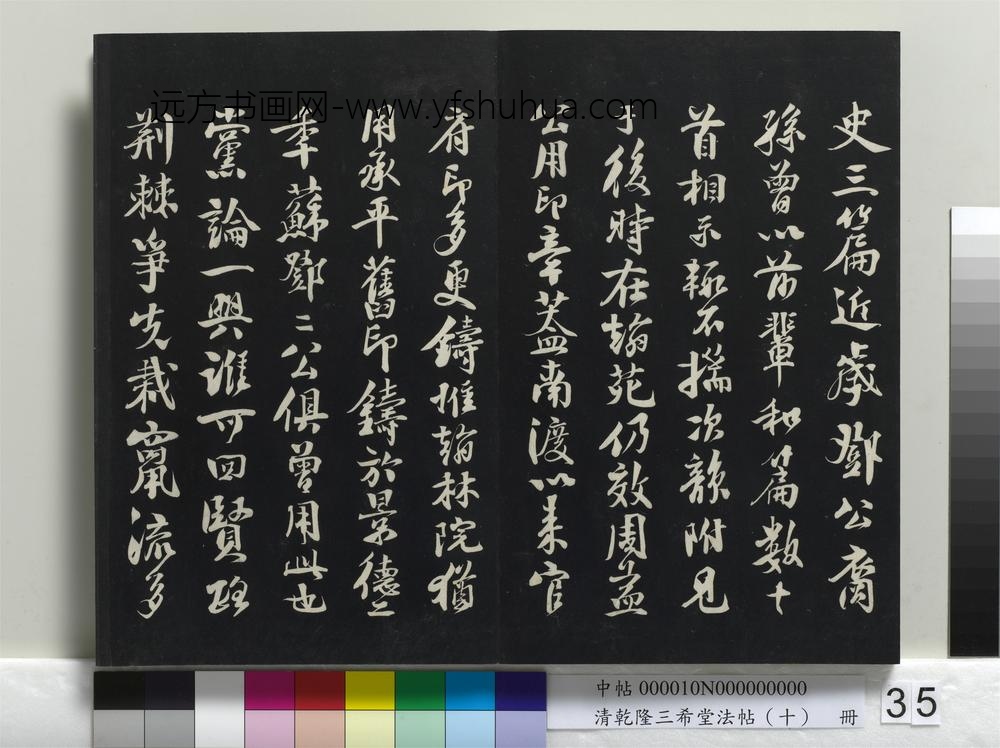 史三篇近歲鄧公裔
孫曾以前輩和篇數十
首相示輒不揣次韻附見
于後時在翰苑仍效周益
公用印章蓋南渡以来官
府印多更鑄惟翰林院猶
用承平舊印鑄於景德二
年蘇鄧二公俱曾用此也
黨論一興誰可回賢路
荊棘爭先栽竄流多
远方书画网-www.yfshuhua.com
中帖 000010N000000000
清乾隆三希堂法帖（十） 冊
35